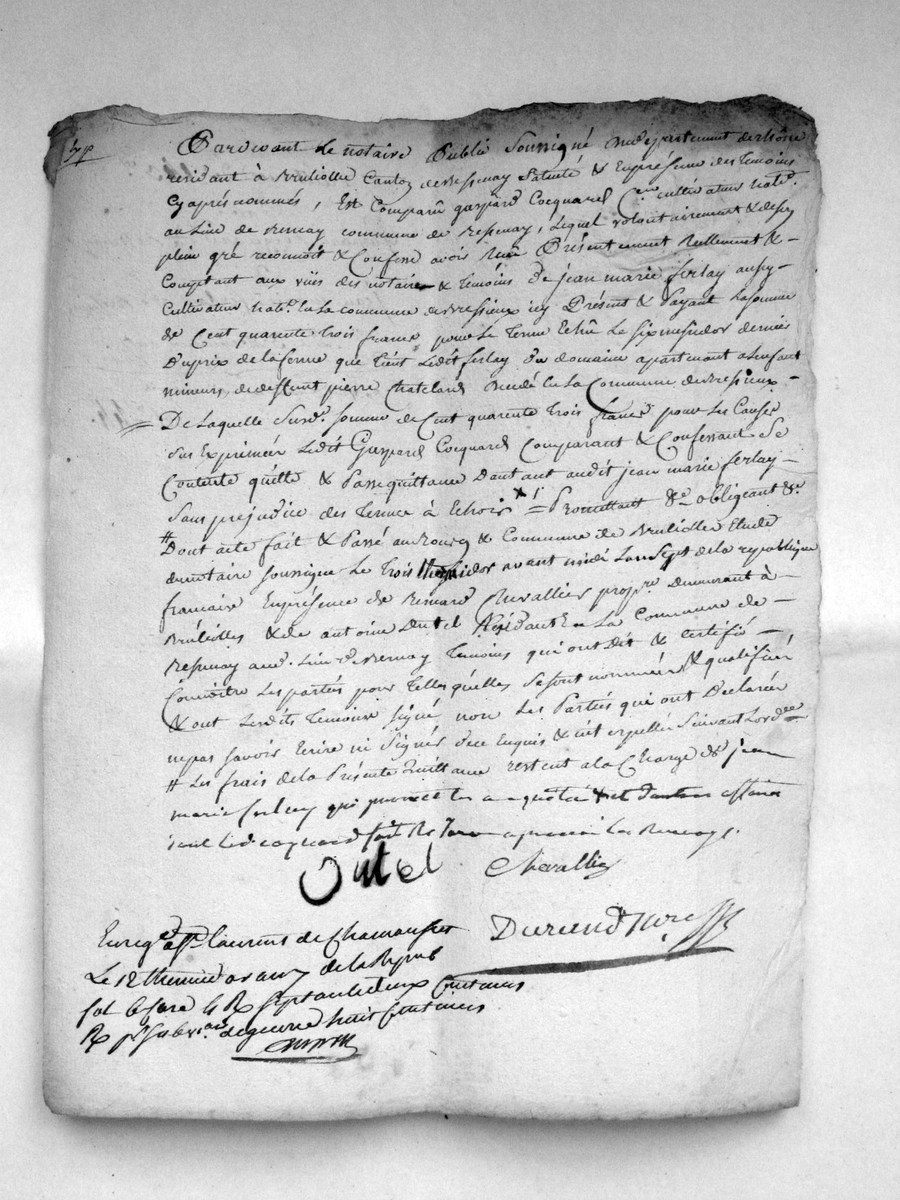 Pardevant le notaire Public Soussigné au département du rhône
residant à Bruliolle Canton de Bessenay Patenté & En présence des témoins
Cy après nommés, Est Comparû gaspard Cocquard Cultivateur habt.
au Lieu de Bernay commune de Bessenay, Lequel volontairement & de son
plein gré reconnoit & Confesse avoir Reçû Présentement Reellement &
Comptant aux vües des notaire & témoins De jean marie ferlay aussy
Cultivateur habt. En La commune de Bressieux icy Présent & Payant La somme
de Cent quarente trois francs pour le Terme Echû Le six messidor dernier
Du prix de la ferme que Tient Ledit ferlay Du domaine apartenant a Lenfant
mineur de deffunt pierre Chateland Scitué En La Commune de Bressieux
De Laquelle Susd. somme de Cent quarente trois francs pour Les Causes
Sus Exprimées Ledit Gaspard Cocquard Comparant & Confessant Se
Contente quitte & Passe quittance Dautant audit jean marie ferlay
Sans prejudice des Termes à Echoir Promettant &c obligeant &c
# Dont acte fait & Passé au Bourg & Commune de Bruliolle Etude
du notaire soussigné Le trois thermidor avant midi Lan Sept de la republique
francaise En présence de Bernard Chevallier propre. Demeurant à
Bruliolles & de antoine Dutel Résidant En La Commune de
Bessenay aud. Lieu de Bernay Temoins qui ont dit & certifié
Connoitre Les parties pour Telles qu'elles Se sont nommées & qualifiées
& ont Lesdits temoins signé non Les Parties qui ont Déclarées
ne pas savoir Ecrire ni Signer de ce Enquis & interpellé Suivant Lordce
# Les frais de la Présente quittance restent a la Charge de jean
marie ferlay qui
Dutel Chevallier
Durand nore
Enregé à St Laurent de Chamousset
Le 12 thermidor an 7 de la Repub
fol Case Rx Sept aulieu deux centimes
Rx pr Subv. de guerre huit Centimes